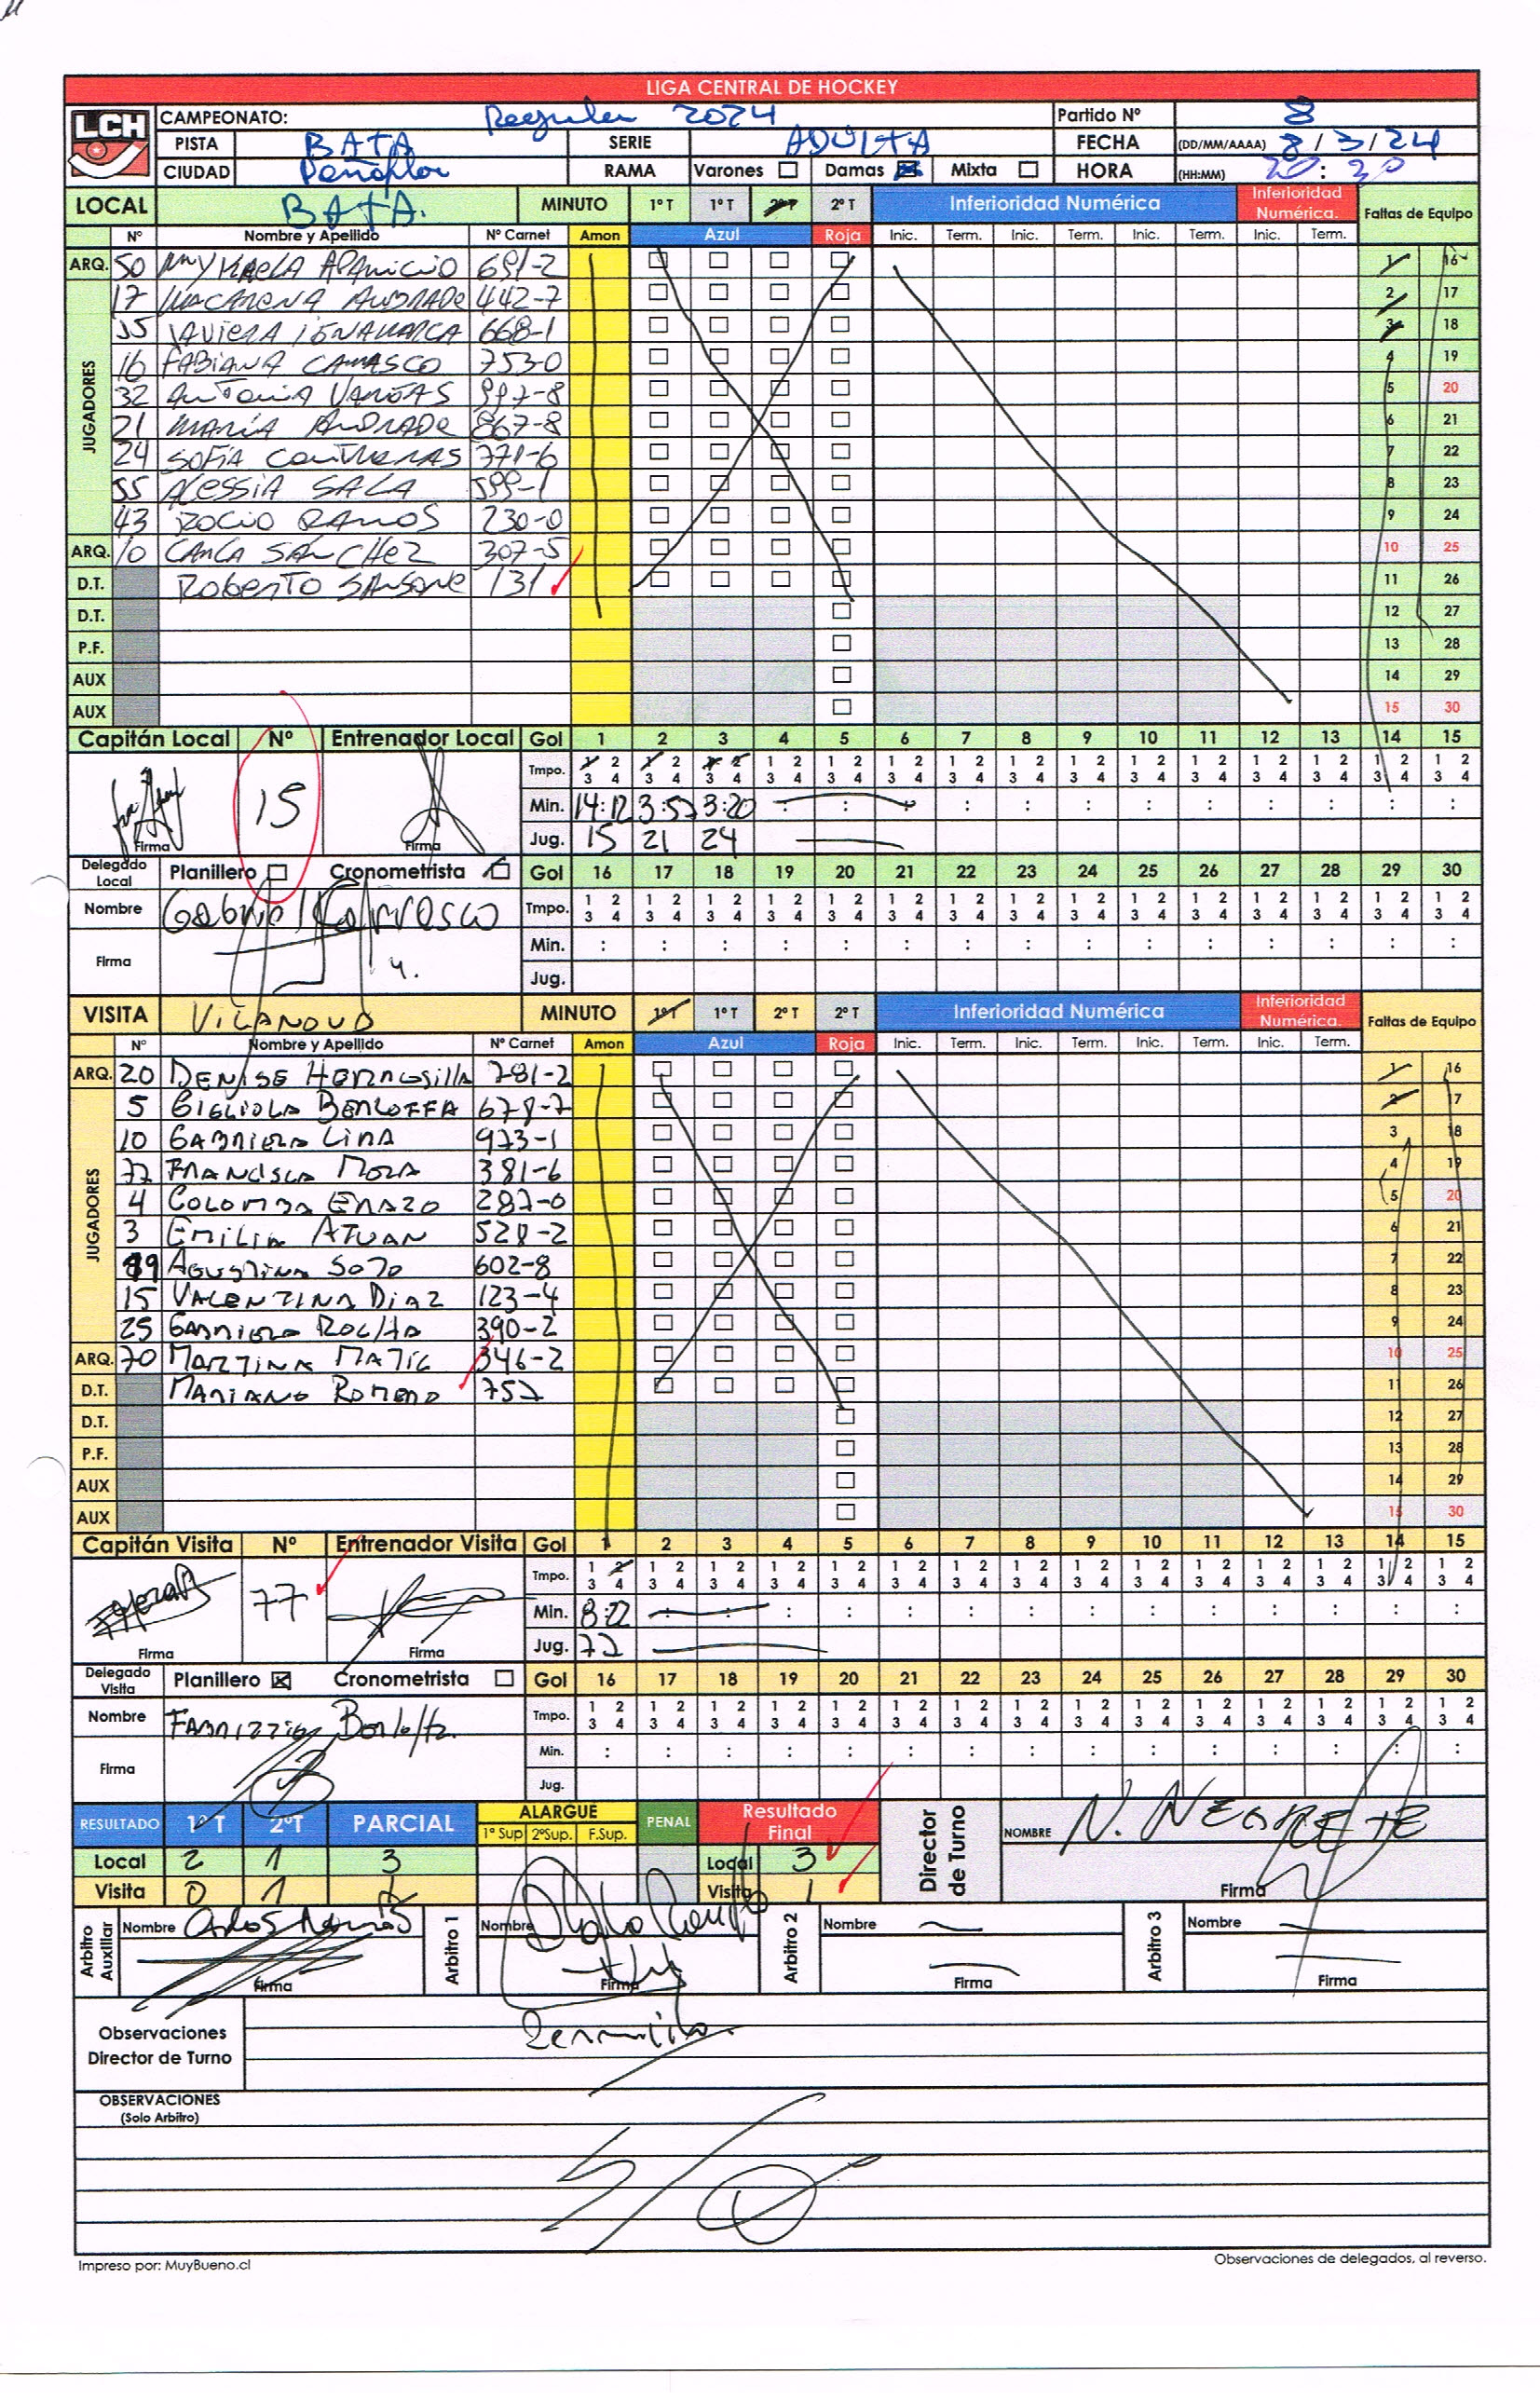 LIGA CENTRAL DE HOCKEY
LCH
CAMPEONATO: Regular 2024 Partido Nº 8
PISTA BATA SERIE ADULTA FECHA (DD/MM/AAAA) 8/3/24
CIUDAD Peñaflor RAMA Varones Damas Mixta HORA (HH:MM) 20:30
LOCAL BATA. MINUTO 1º T 1º T 2º T 2º T Inferioridad Numérica Inferioridad Numérica. Faltas de Equipo
Nº Nombre y Apellido Nº Carnet Amon Azul Roja Inic. Term. Inic. Term. Inic. Term. Inic. Term.
ARQ. 50 APARICIO 691-2 1 16
JUGADORES
17 MACARENA ANDRADE 442-7 2 17
JAVIERA 668-1 3 18
16 FABIANA CAMASCO 753-0 4 19
32 ANTONIA VARGAS 997-8 5 20
21 MARÍA ANDRADE 867-8 6 21
24 SOFÍA CONTRERAS 771-6 7 22
55 ALESSIA SALA 599-1 8 23
43 ROCIO RAMOS 230-0 9 24
ARQ. 10 CARLA SÁNCHEZ 307-5 10 25
D.T. ROBERTO SANSONE 131 11 26
D.T. 12 27
P.F. 13 28
AUX 14 29
AUX 15 30
Capitán Local Nº Entrenador Local Gol 1 2 3 4 5 6 7 8 9 10 11 12 13 14 15
Tmpo. 1 2 3 4 1 2 3 4 1 2 3 4 1 2 3 4 1 2 3 4 1 2 3 4 1 2 3 4 1 2 3 4 1 2 3 4 1 2 3 4 1 2 3 4 1 2 3 4 1 2 3 4 1 2 3 4 1 2 3 4
15 Min. 14:12 3:57 3:20 : : : : : : : : : : : :
Firma Firma Jug. 15 21 24
Delegado Local Planillero Cronometrista Gol 16 17 18 19 20 21 22 23 24 25 26 27 28 29 30
Nombre Gabriel Carrasco Tmpo. 1 2 3 4 1 2 3 4 1 2 3 4 1 2 3 4 1 2 3 4 1 2 3 4 1 2 3 4 1 2 3 4 1 2 3 4 1 2 3 4 1 2 3 4 1 2 3 4 1 2 3 4 1 2 3 4 1 2 3 4
Firma Min. : : : : : : : : : : : : : : :
Jug.
VISITA VILANOVA MINUTO 1º T 1º T 2º T 2º T Inferioridad Numérica Inferioridad Numérica. Faltas de Equipo
Nº Nombre y Apellido Nº Carnet Amon Azul Roja Inic. Term. Inic. Term. Inic. Term. Inic. Term.
ARQ. 20 DENISE HERMOSILLA 781-2 1 16
JUGADORES
5 GIGLIOLA BERLOFFA 678-7 2 17
10 GABRIELA LIRA 973-1 3 18
77 FRANCISCA MORA 381-6 4 19
4 COLOMBA ERAZO 287-0 5 20
3 EMILIA ATUAN 528-2 6 21
AGUSTINA SOTO 602-8 7 22
15 VALENTINA DIAZ 123-4 8 23
25 GABRIELA ROCHA 390-2 9 24
ARQ. 70 MARTINA MATIC 346-2 10 25
D.T. MARIANO ROMERO 757 11 26
D.T. 12 27
P.F. 13 28
AUX 14 29
AUX 15 30
Capitán Visita Nº Entrenador Visita Gol 1 2 3 4 5 6 7 8 9 10 11 12 13 14 15
Tmpo. 1 2 3 4 1 2 3 4 1 2 3 4 1 2 3 4 1 2 3 4 1 2 3 4 1 2 3 4 1 2 3 4 1 2 3 4 1 2 3 4 1 2 3 4 1 2 3 4 1 2 3 4 1 2 3 4 1 2 3 4
77 Min. 8:22 : : : : : : : : : : : : : :
Firma Firma Jug. 77
Delegado Visita Planillero Cronometrista Gol 16 17 18 19 20 21 22 23 24 25 26 27 28 29 30
Nombre Fabrizzio Berloffa. Tmpo. 1 2 3 4 1 2 3 4 1 2 3 4 1 2 3 4 1 2 3 4 1 2 3 4 1 2 3 4 1 2 3 4 1 2 3 4 1 2 3 4 1 2 3 4 1 2 3 4 1 2 3 4 1 2 3 4 1 2 3 4
Firma Min. : : : : : : : : : : : : : : :
Jug.
RESULTADO 1ºT 2ºT PARCIAL ALARGUE 1ª Sup 2ºSup. F.Sup. PENAL Resultado Final Director de Turno NOMBRE N. NEGRETE
Local 2 1 3 Local 3
Visita 0 1 1 Visita 1 Firma
Arbitro Auxiliar Nombre Carlos Arbitro 1 Nombre Arbitro 2 Nombre Arbitro 3 Nombre
Firma Firma Firma Firma
Observaciones
Director de Turno
OBSERVACIONES
(Solo Arbitro)
Impreso por: MuyBueno.cl Observaciones de delegados, al reverso.